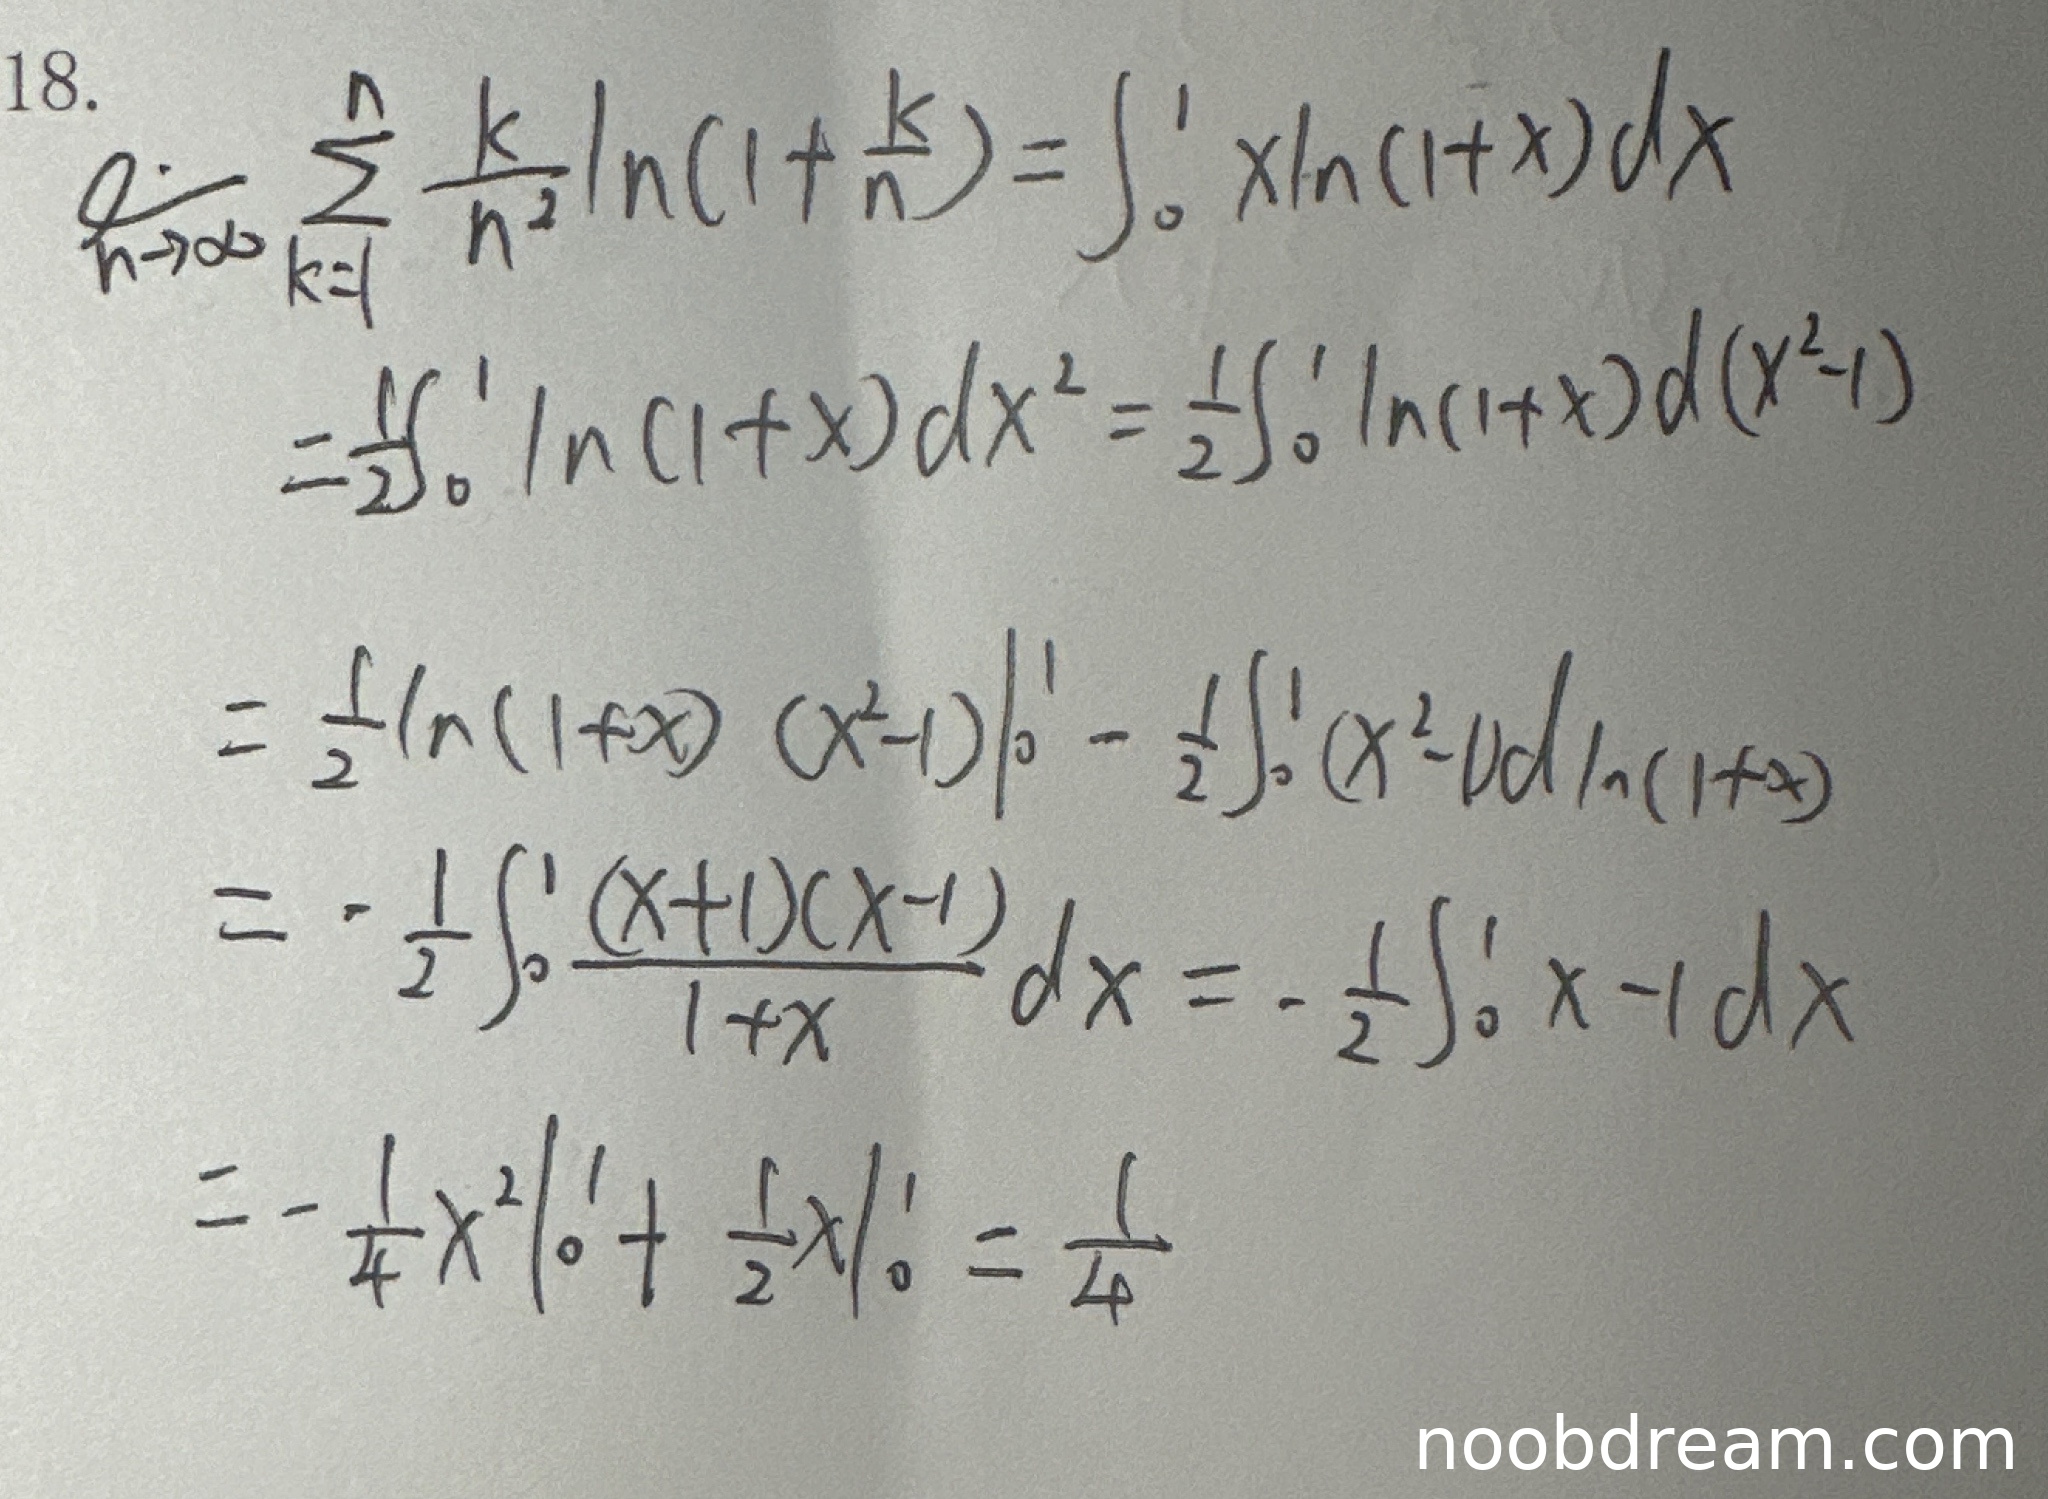 18.
lim_{n→∞} ∑_{k=1}^{n} \frac{k}{n^2} ln(1+\frac{k}{n}) = ∫_0^1 xln(1+x)dx
= \frac{1}{2}∫_0^1 ln(1+x)dx^2 = \frac{1}{2}∫_0^1 ln(1+x)d(x^2-1)
= \frac{1}{2}ln(1+x) (x^2-1)|_0^1 - \frac{1}{2}∫_0^1 (x^2-1)d ln(1+x)
= -\frac{1}{2}∫_0^1 \frac{(x+1)(x-1)}{1+x} dx = -\frac{1}{2}∫_0^1 x-1dx
= -\frac{1}{4}x^2|_0^1 + \frac{1}{2}x|_0^1 = \frac{1}{4}
noobdream.com